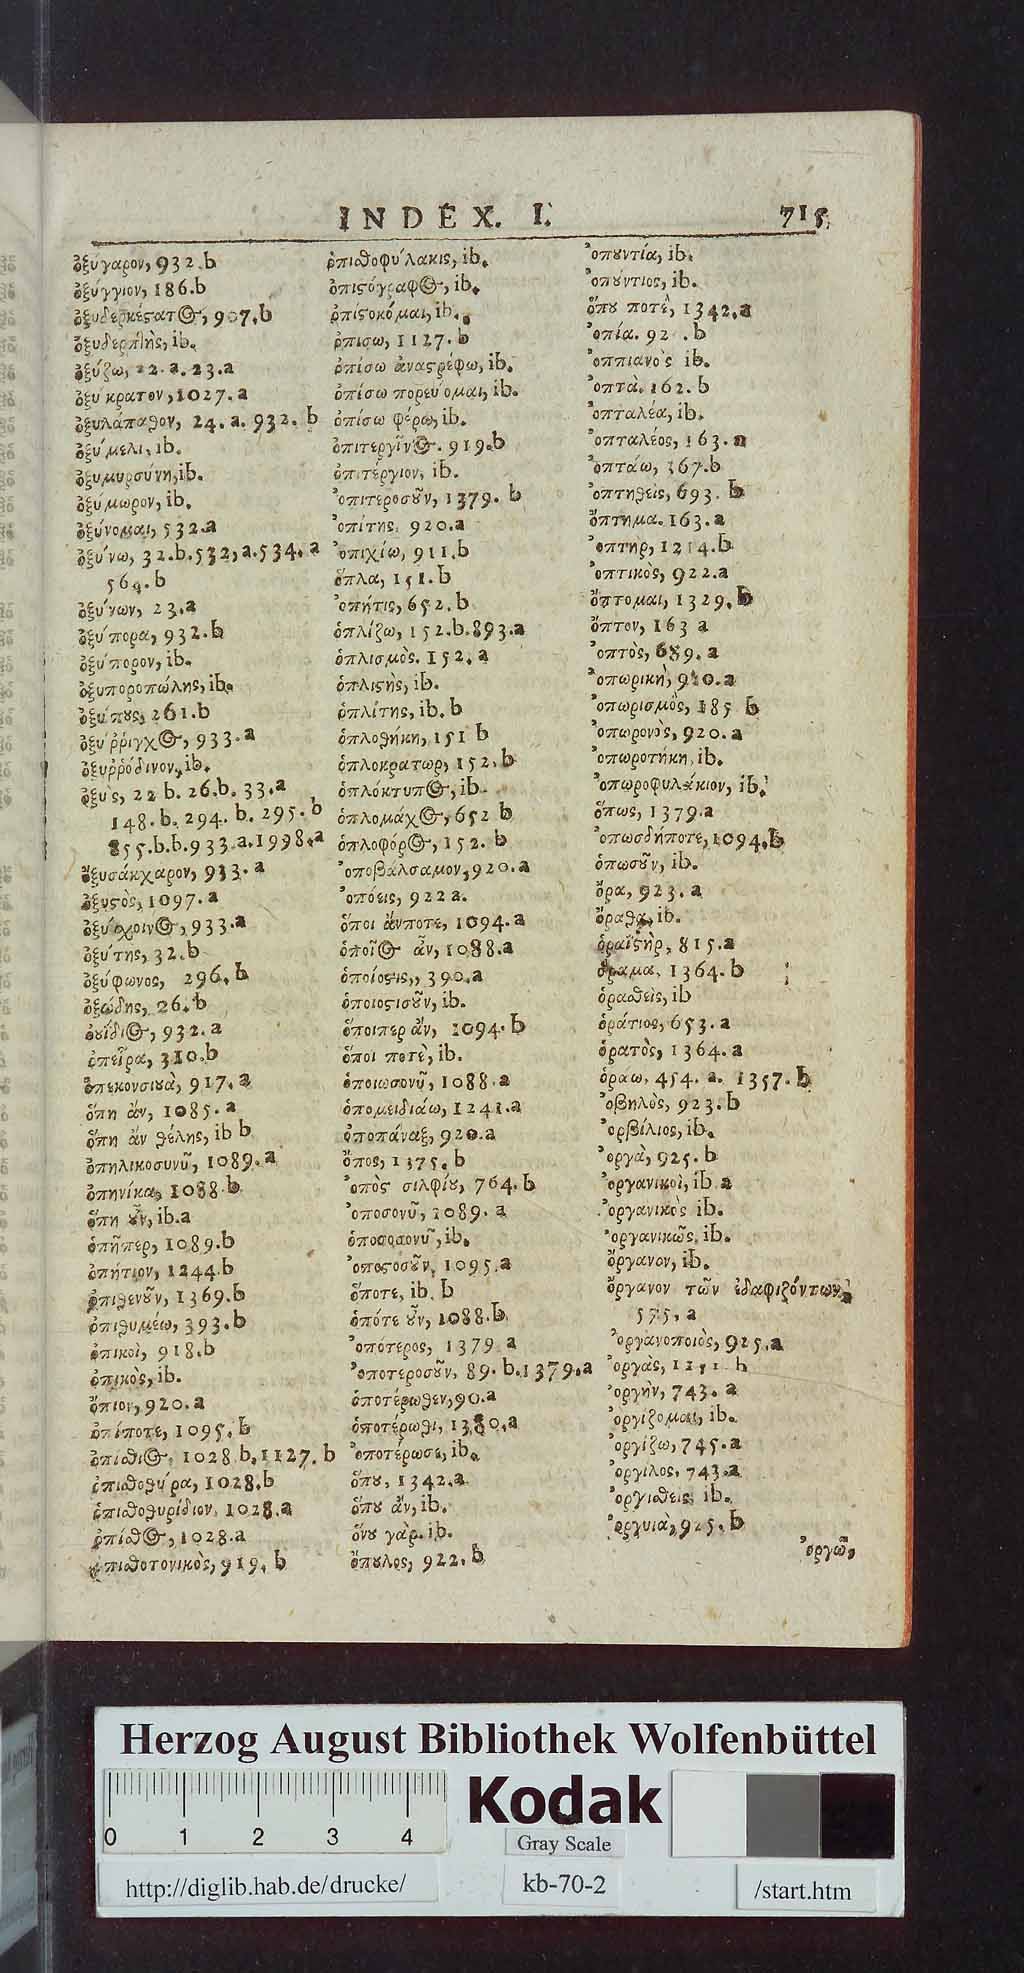 INDEX. I. 715.
ὀξύγαρον, 932.b
ὀξύγγιον, 186.b
ὀξυδερκέςατος, 907.b
ὀξυδερκὴς, ib.
ὀξύζω, 22.a.23.a
ὀξύκρατον, 1027.a
ὀξυλάπαθον, 24.a.932.b
ὀξύμελι, ib.
ὀξυμυρσύνη, ib.
ὀξύμωρον, ib.
ὀξύνομαι, 532.a
ὀξύνω, 32.b.532,a.534.a
569.b
ὀξύνων, 23.a
ὀξύπορα, 932.b
ὀξύπορον, ib.
ὀξυποροπώλης, ib.
ὀξύπους, 261.b
ὀξύῤῥιγχος, 933.a
ὀξυῤῥόδινον, ib.
ὀξὺς, 22 b. 26.b. 33.a
148.b. 294. b. 295.b
855.b.b.933.a.1998.a
ὀξυσάκχαρον, 933.a
ὀξυςὸς, 1097.a
ὀξύσχοινος, 933.a
ὀξύτης, 32.b
ὀξύφωνος, 296.b
ὀξώδης, 26.b
ὀυΐδιος, 932.a
ὀπεῖρα, 310.b
ὀπεκονσιυὰ, 917.a
ὅπη ἄν, 1085.a
ὅπη ἄν θέλης, ib b
ὀπηλικοσυνοῦ, 1089.a
ὀπηνίκα, 1088.b
ὅπη οὖν, ib.a
ὀπῆπερ, 1089.b
ὀπήτιον, 1244.b
ὀπιθενοῦν, 1369.b
ὀπιθυμέω, 393.b
ὀπικοὶ, 918.b
ὀπικὸς, ib.
ὄπιον, 920.a
ὀπίποτε, 1095.b
ὀπίσθιος, 1028.b.1127.b
ὀπισθοθύρα, 1028.b
ὀπισθοθυρίδιον, 1028.a
ὀπίσθος, 1028.a
ὀπισθοτονικὸς, 919.b
ὀπισθοφύλακις, ib.
ὀπιςόγραφος, ib.
ὀπιςοκόμαι, ib.
ὀπισω, 1127.b
ὀπίσω ἀναςρέφω, ib.
ὀπίσω πορεύομαι, ib.
ὀπίσω φέρω, ib.
ὀπιτεργῖνος. 919.b
ὀπιτέργιον, ib.
ὀπιτεροσοῦν, 1379. b
ὀπίτης, 920.a
ὀπιχίω, 911.b
ὅπλα, 151.b
ὀπήτις, 652.b
ὁπλίζω, 152.b.893.a
ὁπλισμὸς. 152.a
ὁπλιςὴς, ib.
ὁπλίτης, ib.b
ὁπλοθήκη, 151 b
ὁπλοκρατωρ, 152.b
ὁπλόκτυπος, ib.
ὁπλομάχος, 652 b
ὁπλοφόρος, 152. b
ὀποβάλσαμον, 920.a
ὀπόεις, 922 a.
ὅποι ἄνποτε, 1094.a
ὁποῖος ἄν, 1088.a
ὁποίοςις,, 390.a
ὁποιοςισοῦν, ib.
ὅποιπερ ἄν, 1094.b
ὅποι ποτὲ, ib.
ὁποιωσονοῦ, 1088.a
ὀπομειδιάω, 1241.a
ὀποπάναξ, 920.a
ὄπος, 1375.b
ὀπὸς σιλφίου, 764.b
ὀποσονοῦ, 1089.a
ὁποσσονοῦ, ib.
ὀποςοσοῦν, 1095.a
ὅποτε, ib. b
ὁπότε οὖν, 1088.b
ὀπότερος, 1379 a
ὀποτεροσοῦν, 89.b.1379.a
ὁποτέρωθεν, 90.a
ὁποτέρωθι, 1380.a
ὀποτέρωσε, ib.
ὅπου, 1342.a
ὅπου ἄν, ib.
ὅνου γὰρ. ib.
ὄπυλος, 922.b
ὀπουντία, ib.
ὀπούντιος, ib.
ὅπου ποτὲ, 1342.a
ὀπία. 92 .b
ὀππιανὸς ib.
ὀπτὰ. 162.b
ὀπταλέα, ib.
ὀπταλέος, 163.a
ὀπτάω, 367.b
ὀπτηθεὶς, 693. b
ὄπτημα. 163.a
ὀπτὴρ, 1214.b
ὀπτικὸς, 922.a
ὄπτομαι, 1329.b
ὄπτον, 163 a
ὀπτὸς, 689.a
ὀπωρικὴ, 920.a
ὀπωρισμὸς, 185 b
ὀπωρονὸς, 920.a
ὀπωροτήκη, ib.
ὀπωροφυλάκιον, ib.
ὅπως, 1379.a
ὀπωσδήποτε, 1094.b
ὁπωσοῦν, ib.
ὄρα, 923. a
ὄραθα, ib.
ὁραΐςὴρ, 815.a
ὅραμα, 1364.b
ὁραθεὶς, ib
ὁράτιος, 653.a
ὁρατὸς, 1364.a
ὁράω, 454.a. 1357.b
ὀβηλὸς, 923.b
ὀρβίλιος, ib.
ὀργὰ, 925.b
ὀργανικοὶ, ib a
ὀργανικὸς ib.
ὀργανικῶς, ib.
ὄργανον, ib.
ὄργανον τῶν ἐδαφιζόντων,
575, a
ὀργανοποιὸς, 925.a
ὀργὰς, 1251 b
ὀργὴν, 743. a
ὀργίζομαι, ib.
ὀργίζω, 745.a
ὀργιλος, 743.a
ὀργισθεὶς, ib.
ὀργυιὰ, 925.b
ὀργῶ,
Herzog August Bibliothek Wolfenbüttel
0 1 2 3 4
Kodak
Gray Scale
http://diglib.hab.de/drucke/
kb-70-2
/start.htm